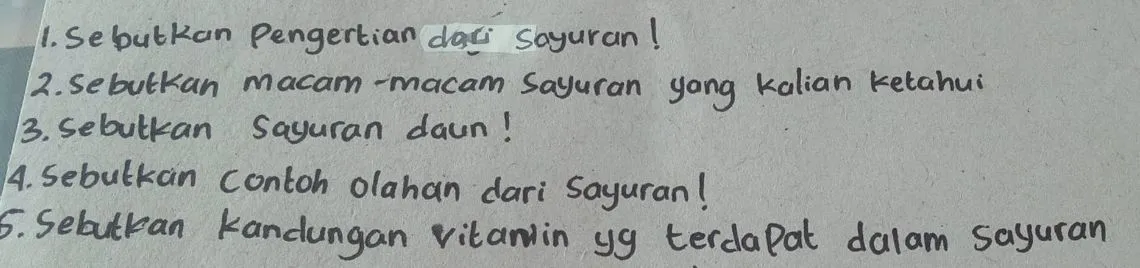 1. Sebutkan Pengertian dari Sayuran!
2. Sebutkan macam-macam Sayuran yang kalian ketahui
3. Sebutkan Sayuran daun!
4. Sebutkan Contoh olahan dari Sayuran!
5. Sebutkan kandungan vitamin yg terdapat dalam sayuran